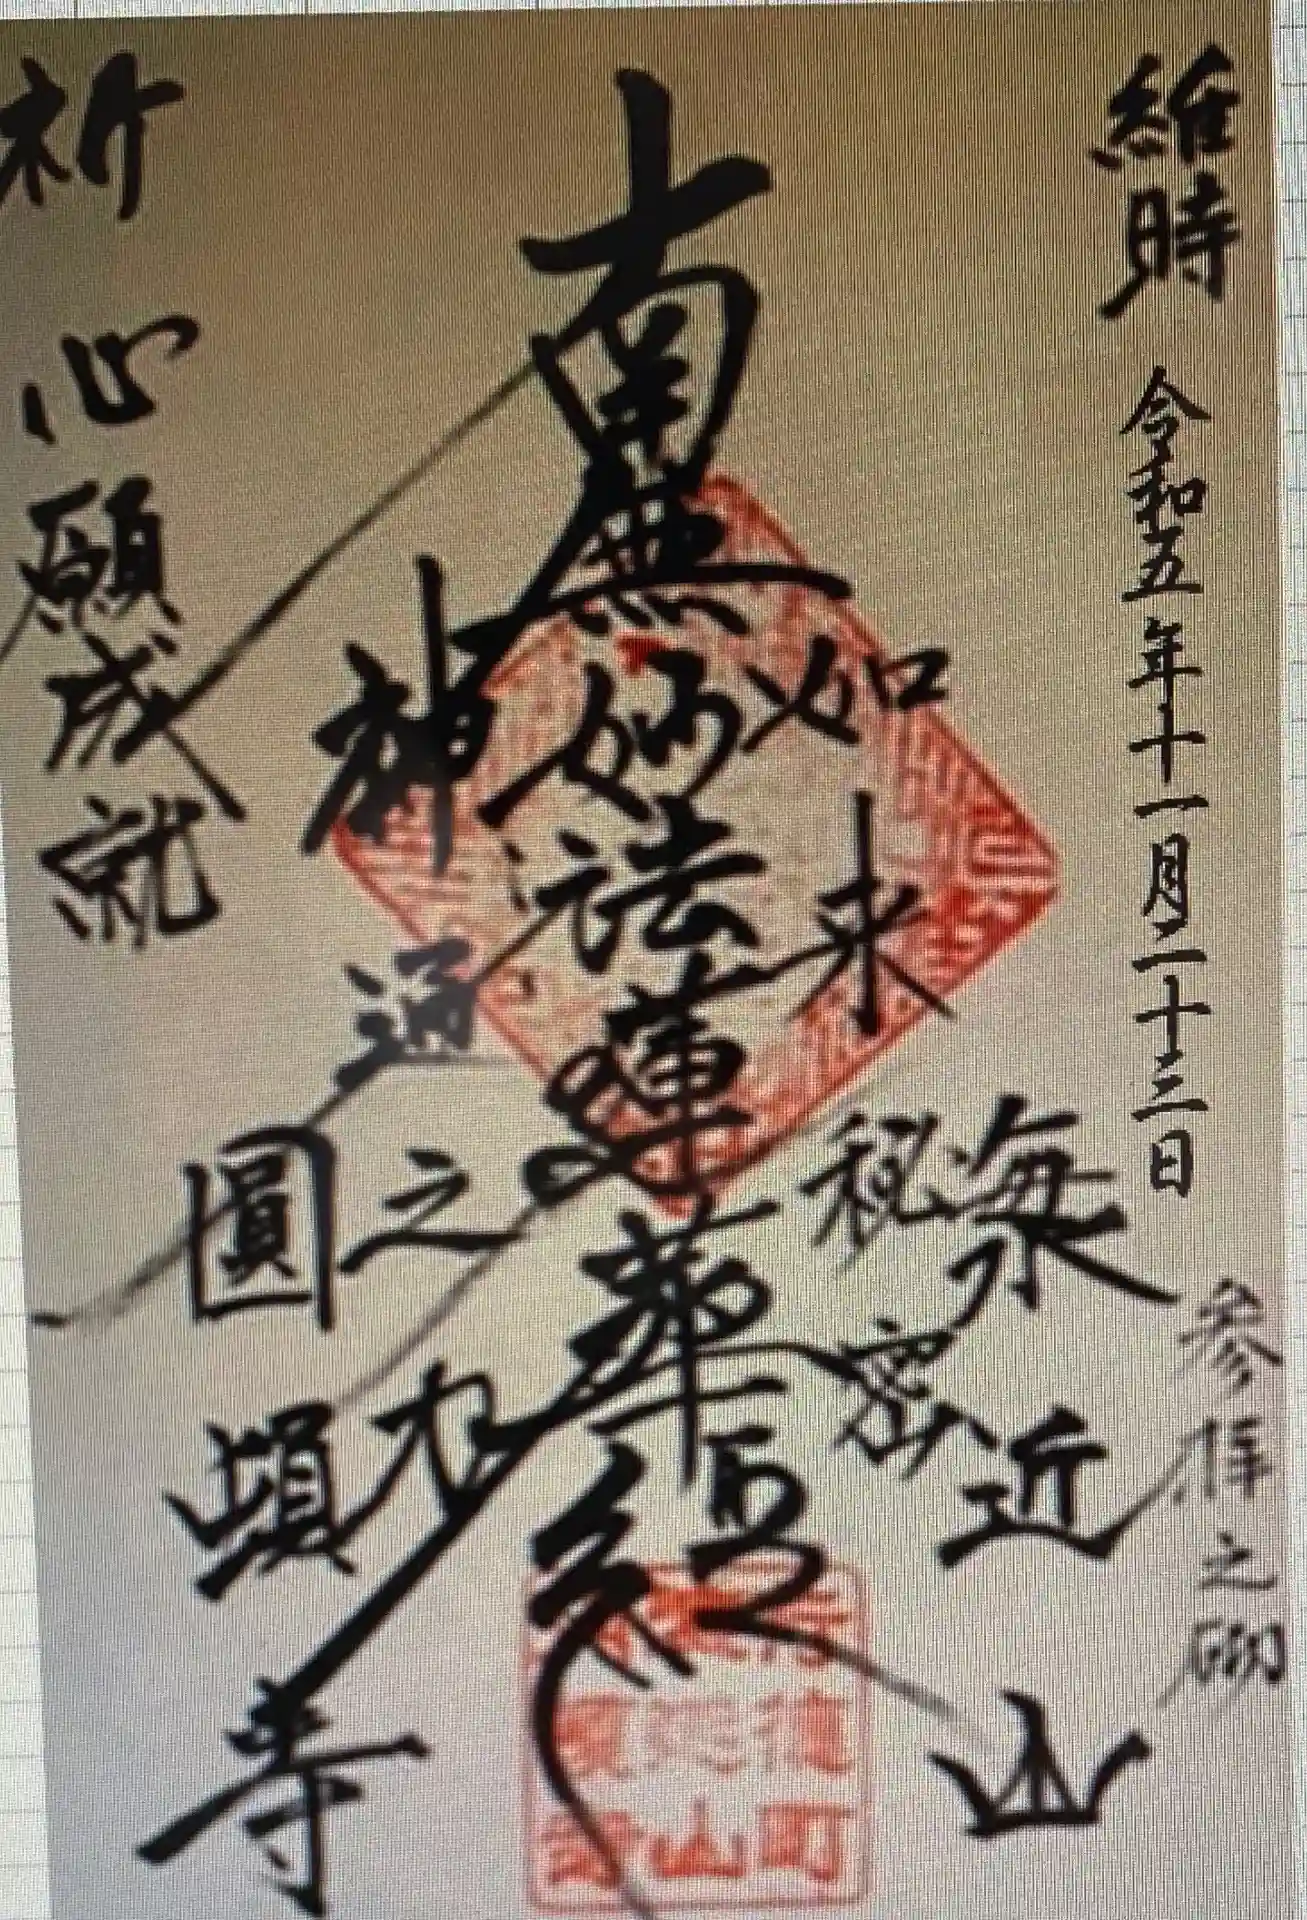 維時 令和五年十一月二十三日 參拝之砌
海近山
如来秘密
南無妙法蓮華経
神通之力
圓頓寺
祈 心願成就